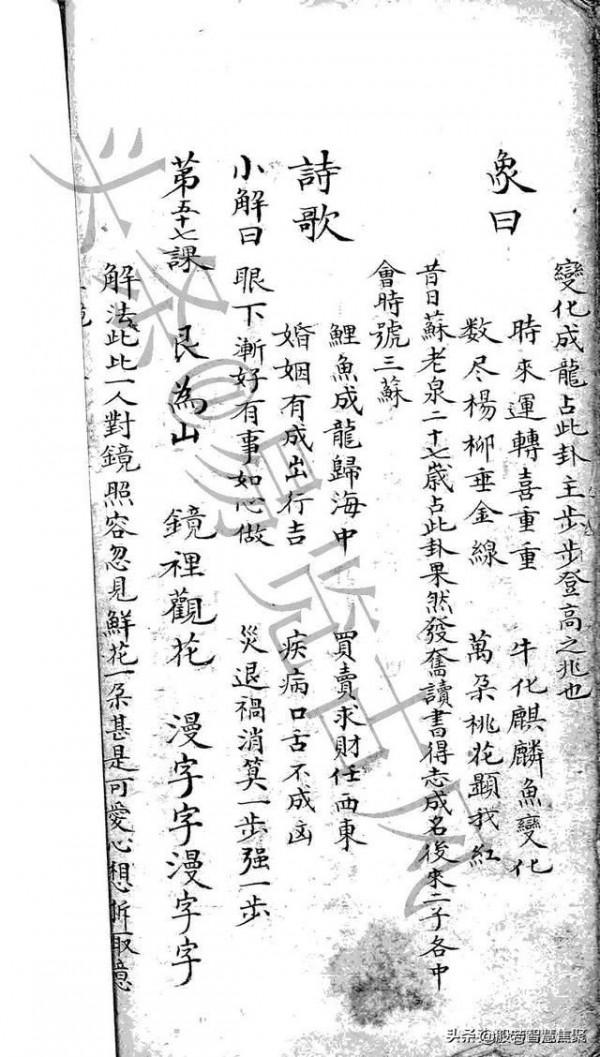 變化成龍占此卦主步步登高之兆也
象曰
時來運轉喜重重 牛化麒麟魚變化
数尽楊柳垂金線 萬朵桃花顯我紅
昔日蘇老泉二十七歳占此卦果然發奮讀書得志成名後來二子各中
會時號三蘇
詩歌
鯉魚成龍歸海中 買賣求財任西東
婚姻有成出行吉 疾病口舌不成凶
小解曰 眼下漸好有事如心做 災退禍消算一步强一步
第五十七課 艮為山 鏡裡觀花 漫字字漫字字
解法此比一人對鏡照容忽見鮮花一朵甚是可愛心想折取
头条@易尚古风
头条@般若智慧焦聚